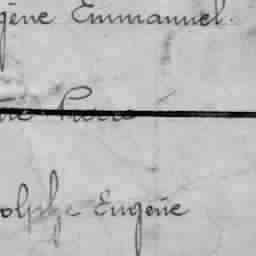 gène Emmanuel.
Pierre
olphe Eugène